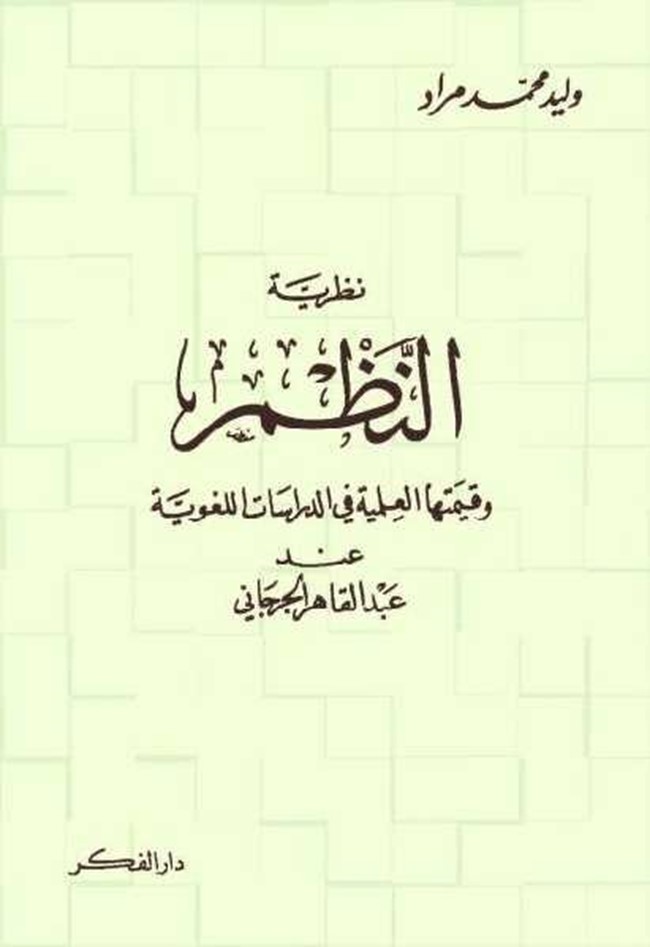 وليد محمّد مراد
نظريّة
النَّظْم
وقيمَتها العِلمية في الدراسَات اللغويَّة
عند
عَبْدالقاهر الجرجَاني
دار الفكر